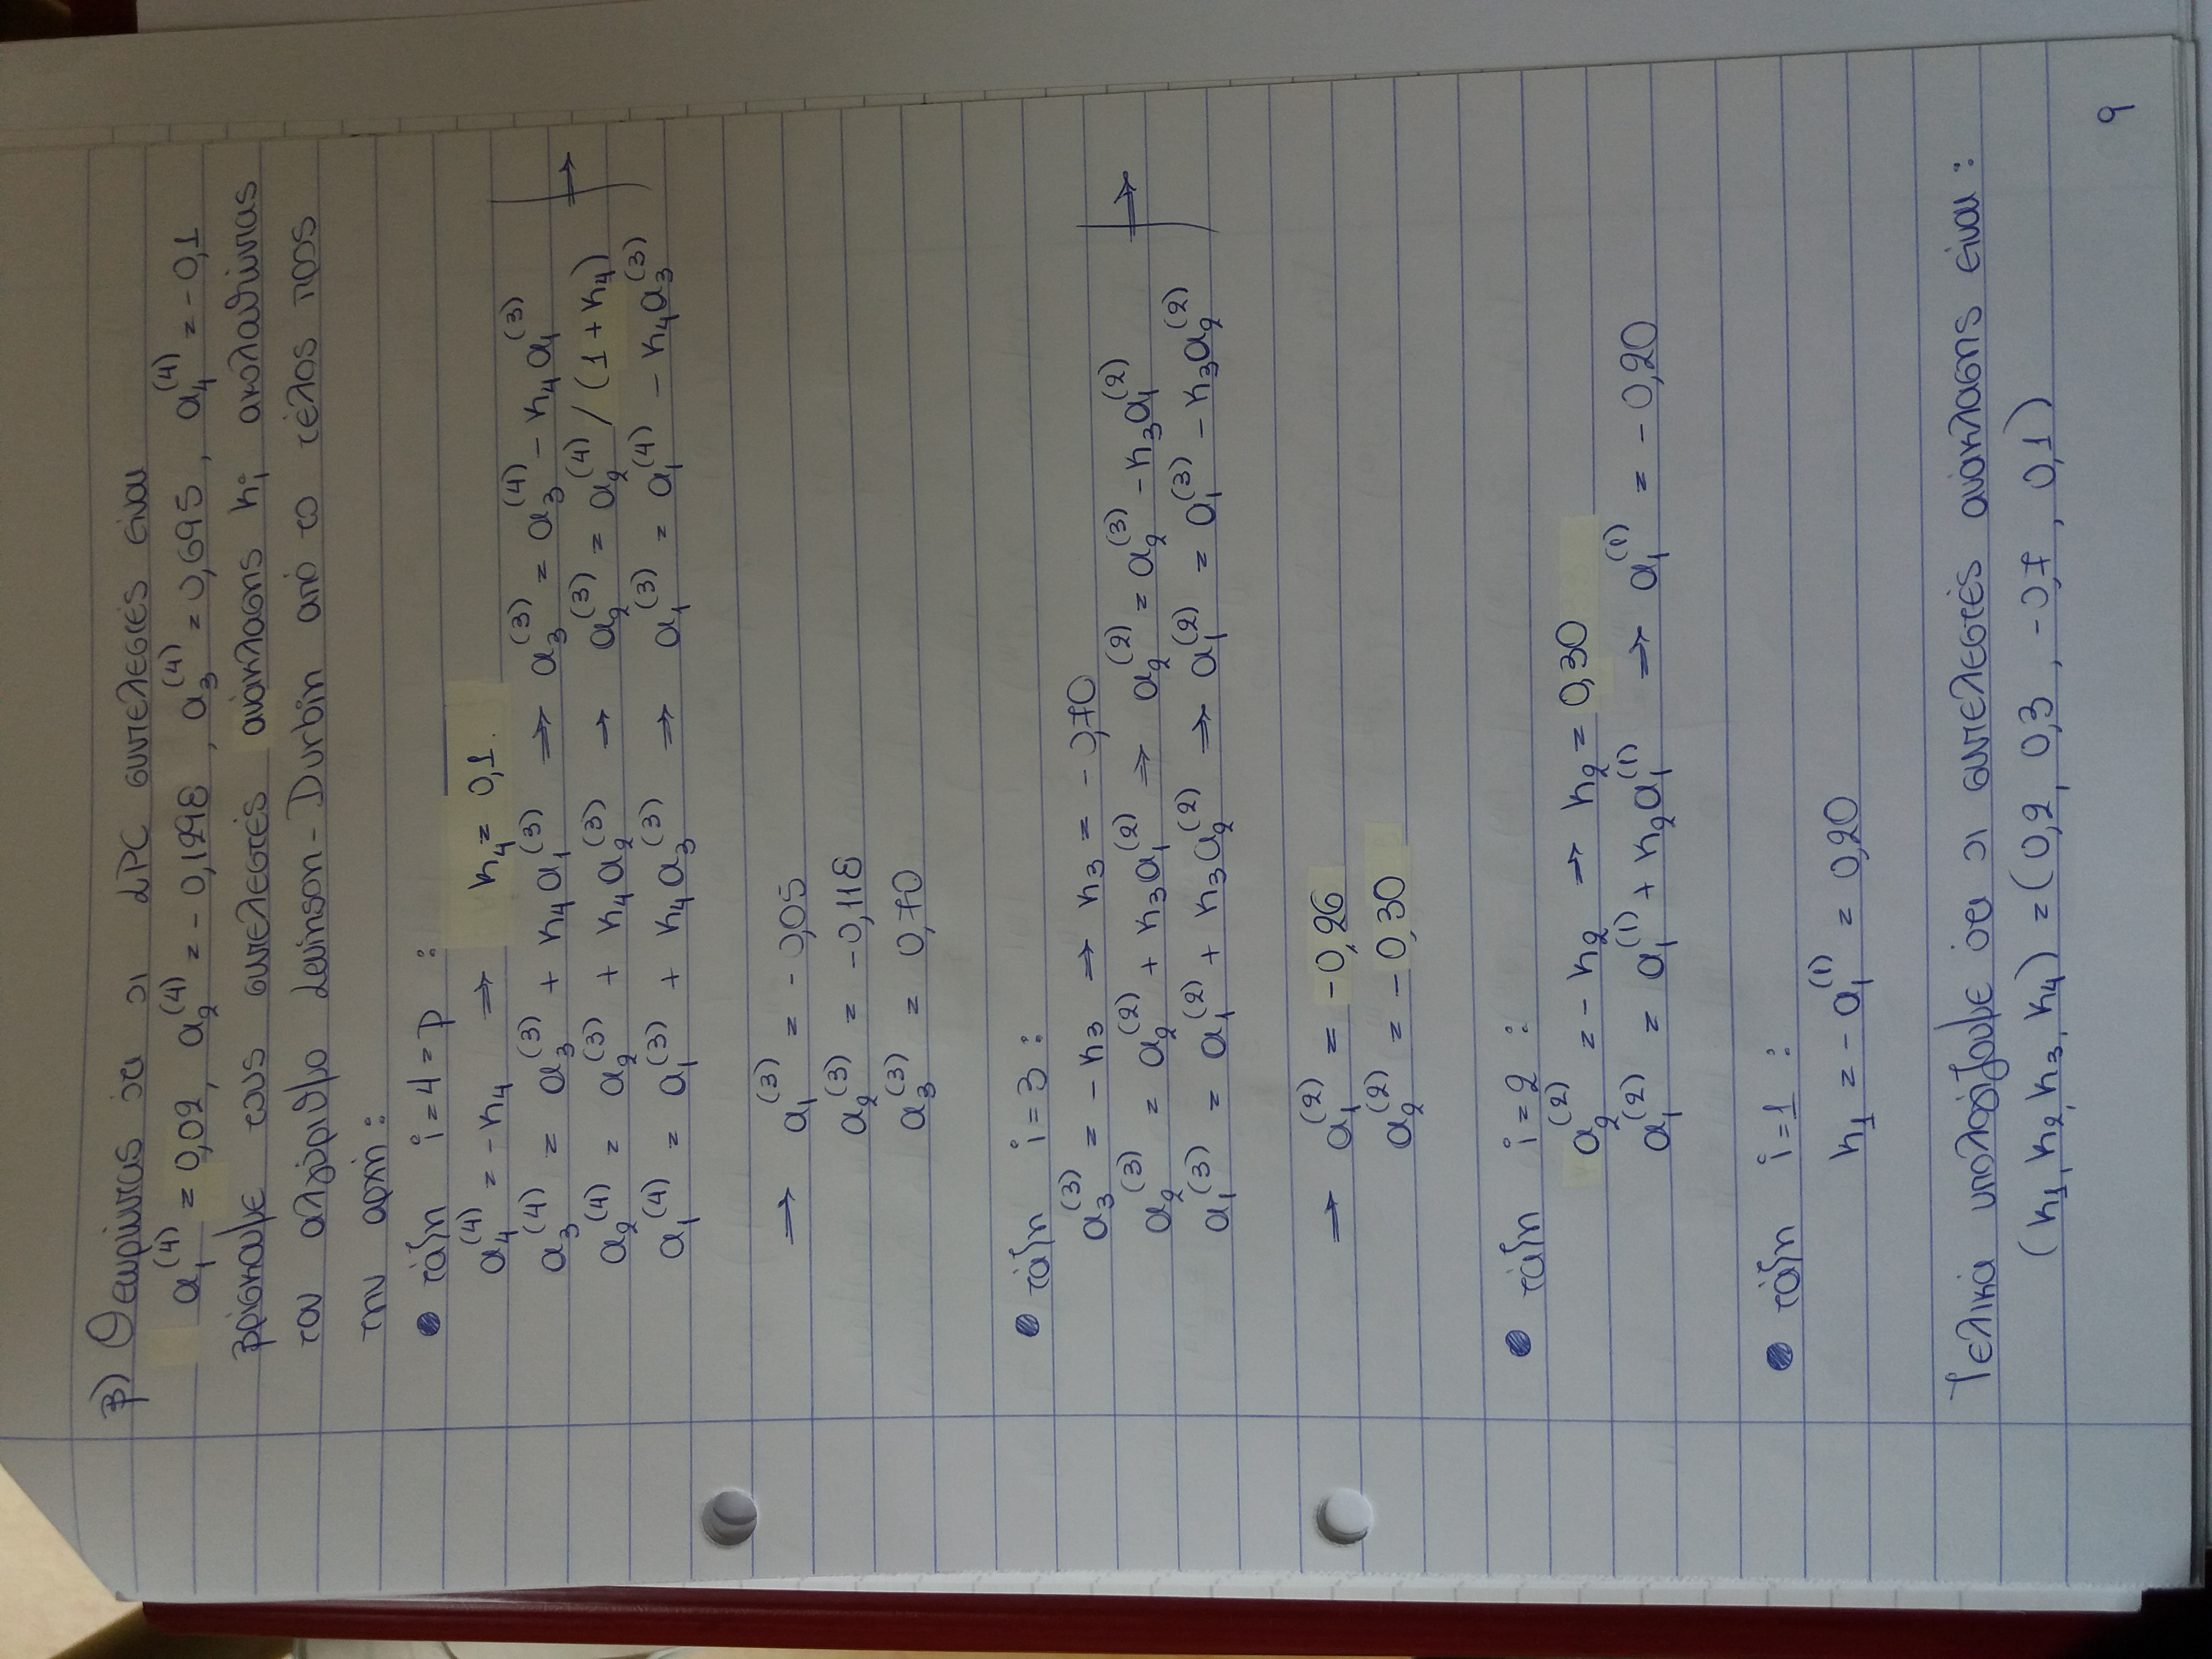 β) Θεωρώντας ότι οι LPC συντελεστές είναι
α₁⁽⁴⁾ = 0,02, α₂⁽⁴⁾ = -0,1298, α₃⁽⁴⁾ = 0,695, α₄⁽⁴⁾ = -0,1
βρίσκουμε τους συντελεστές ανάκλασης kᵢ ακολουθώντας
τον αλγόριθμο Levinson-Durbin από το τέλος προς
την αρχή:
• τάξη i=4=p :
α₄⁽⁴⁾ = -k₄ ⇒ k₄ = 0,1.
α₃⁽⁴⁾ = α₃⁽³⁾ + k₄α₁⁽³⁾ ⇒ α₃⁽³⁾ = α₃⁽⁴⁾ - k₄α₁⁽³⁾
α₂⁽⁴⁾ = α₂⁽³⁾ + k₄α₂⁽³⁾ ⇒ α₂⁽³⁾ = α₂⁽⁴⁾ / (1+k₄) ⇒
α₁⁽⁴⁾ = α₁⁽³⁾ + k₄α₃⁽³⁾ ⇒ α₁⁽³⁾ = α₁⁽⁴⁾ - k₄α₃⁽³⁾
⇒ α₁⁽³⁾ = -0,05
α₂⁽³⁾ = -0,118
α₃⁽³⁾ = 0,70
• τάξη i=3 :
α₃⁽³⁾ = -k₃ ⇒ k₃ = -0,70
α₂⁽³⁾ = α₂⁽²⁾ + k₃α₁⁽²⁾ ⇒ α₂⁽²⁾ = α₂⁽³⁾ - k₃α₁⁽²⁾ ⇒
α₁⁽³⁾ = α₁⁽²⁾ + k₃α₂⁽²⁾ ⇒ α₁⁽²⁾ = α₁⁽³⁾ - k₃α₂⁽²⁾
⇒ α₁⁽²⁾ = -0,26
α₂⁽²⁾ = -0,30
• τάξη i=2 :
α₂⁽²⁾ = -k₂ ⇒ k₂ = 0,30
α₁⁽²⁾ = α₁⁽¹⁾ + k₂α₁⁽¹⁾ ⇒ α₁⁽¹⁾ = -0,20
• τάξη i=1 :
k₁ = -α₁⁽¹⁾ = 0,20
Τελικά υπολογίζουμε ότι οι συντελεστές ανάκλασης είναι :
(k₁, k₂, k₃, k₄) = (0,2, 0,3, -0,7, 0,1)
9